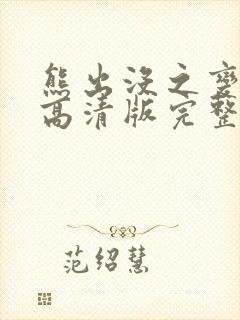 熊出没之变
高清版完整
范绍慧